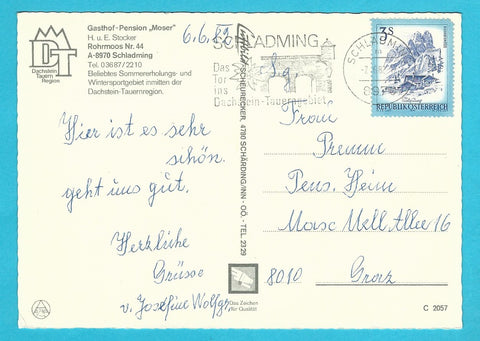 Gasthof-Pension „Moser"
H. u. E. Stocker
Rohrmoos Nr. 44
A-8970 Schladming
Tel. 03687/2210
Beliebtes Sommererholungs- und
Wintersportgebiet inmitten der
Dachstein-Tauernregion.
DT
Dachstein
Tauern
Region
6.6.
SCHLADMING
Das
Tor
ins
Dachstein-Tauerngebiet
3S
REPUBLIK ÖSTERREICH
Hier ist es sehr
schön.
geht uns gut.
Herzliche
Grüsse
v. Josefine Wolfgr.
SCHEURECKER, 4780 SCHÄRDING/INN - OÖ. - TEL. 2329
Sg.
Frau
Premm
Pens. Heim
Max Mell Allee 16
8010 Graz
Das Zeichen
für Qualität
C 2057